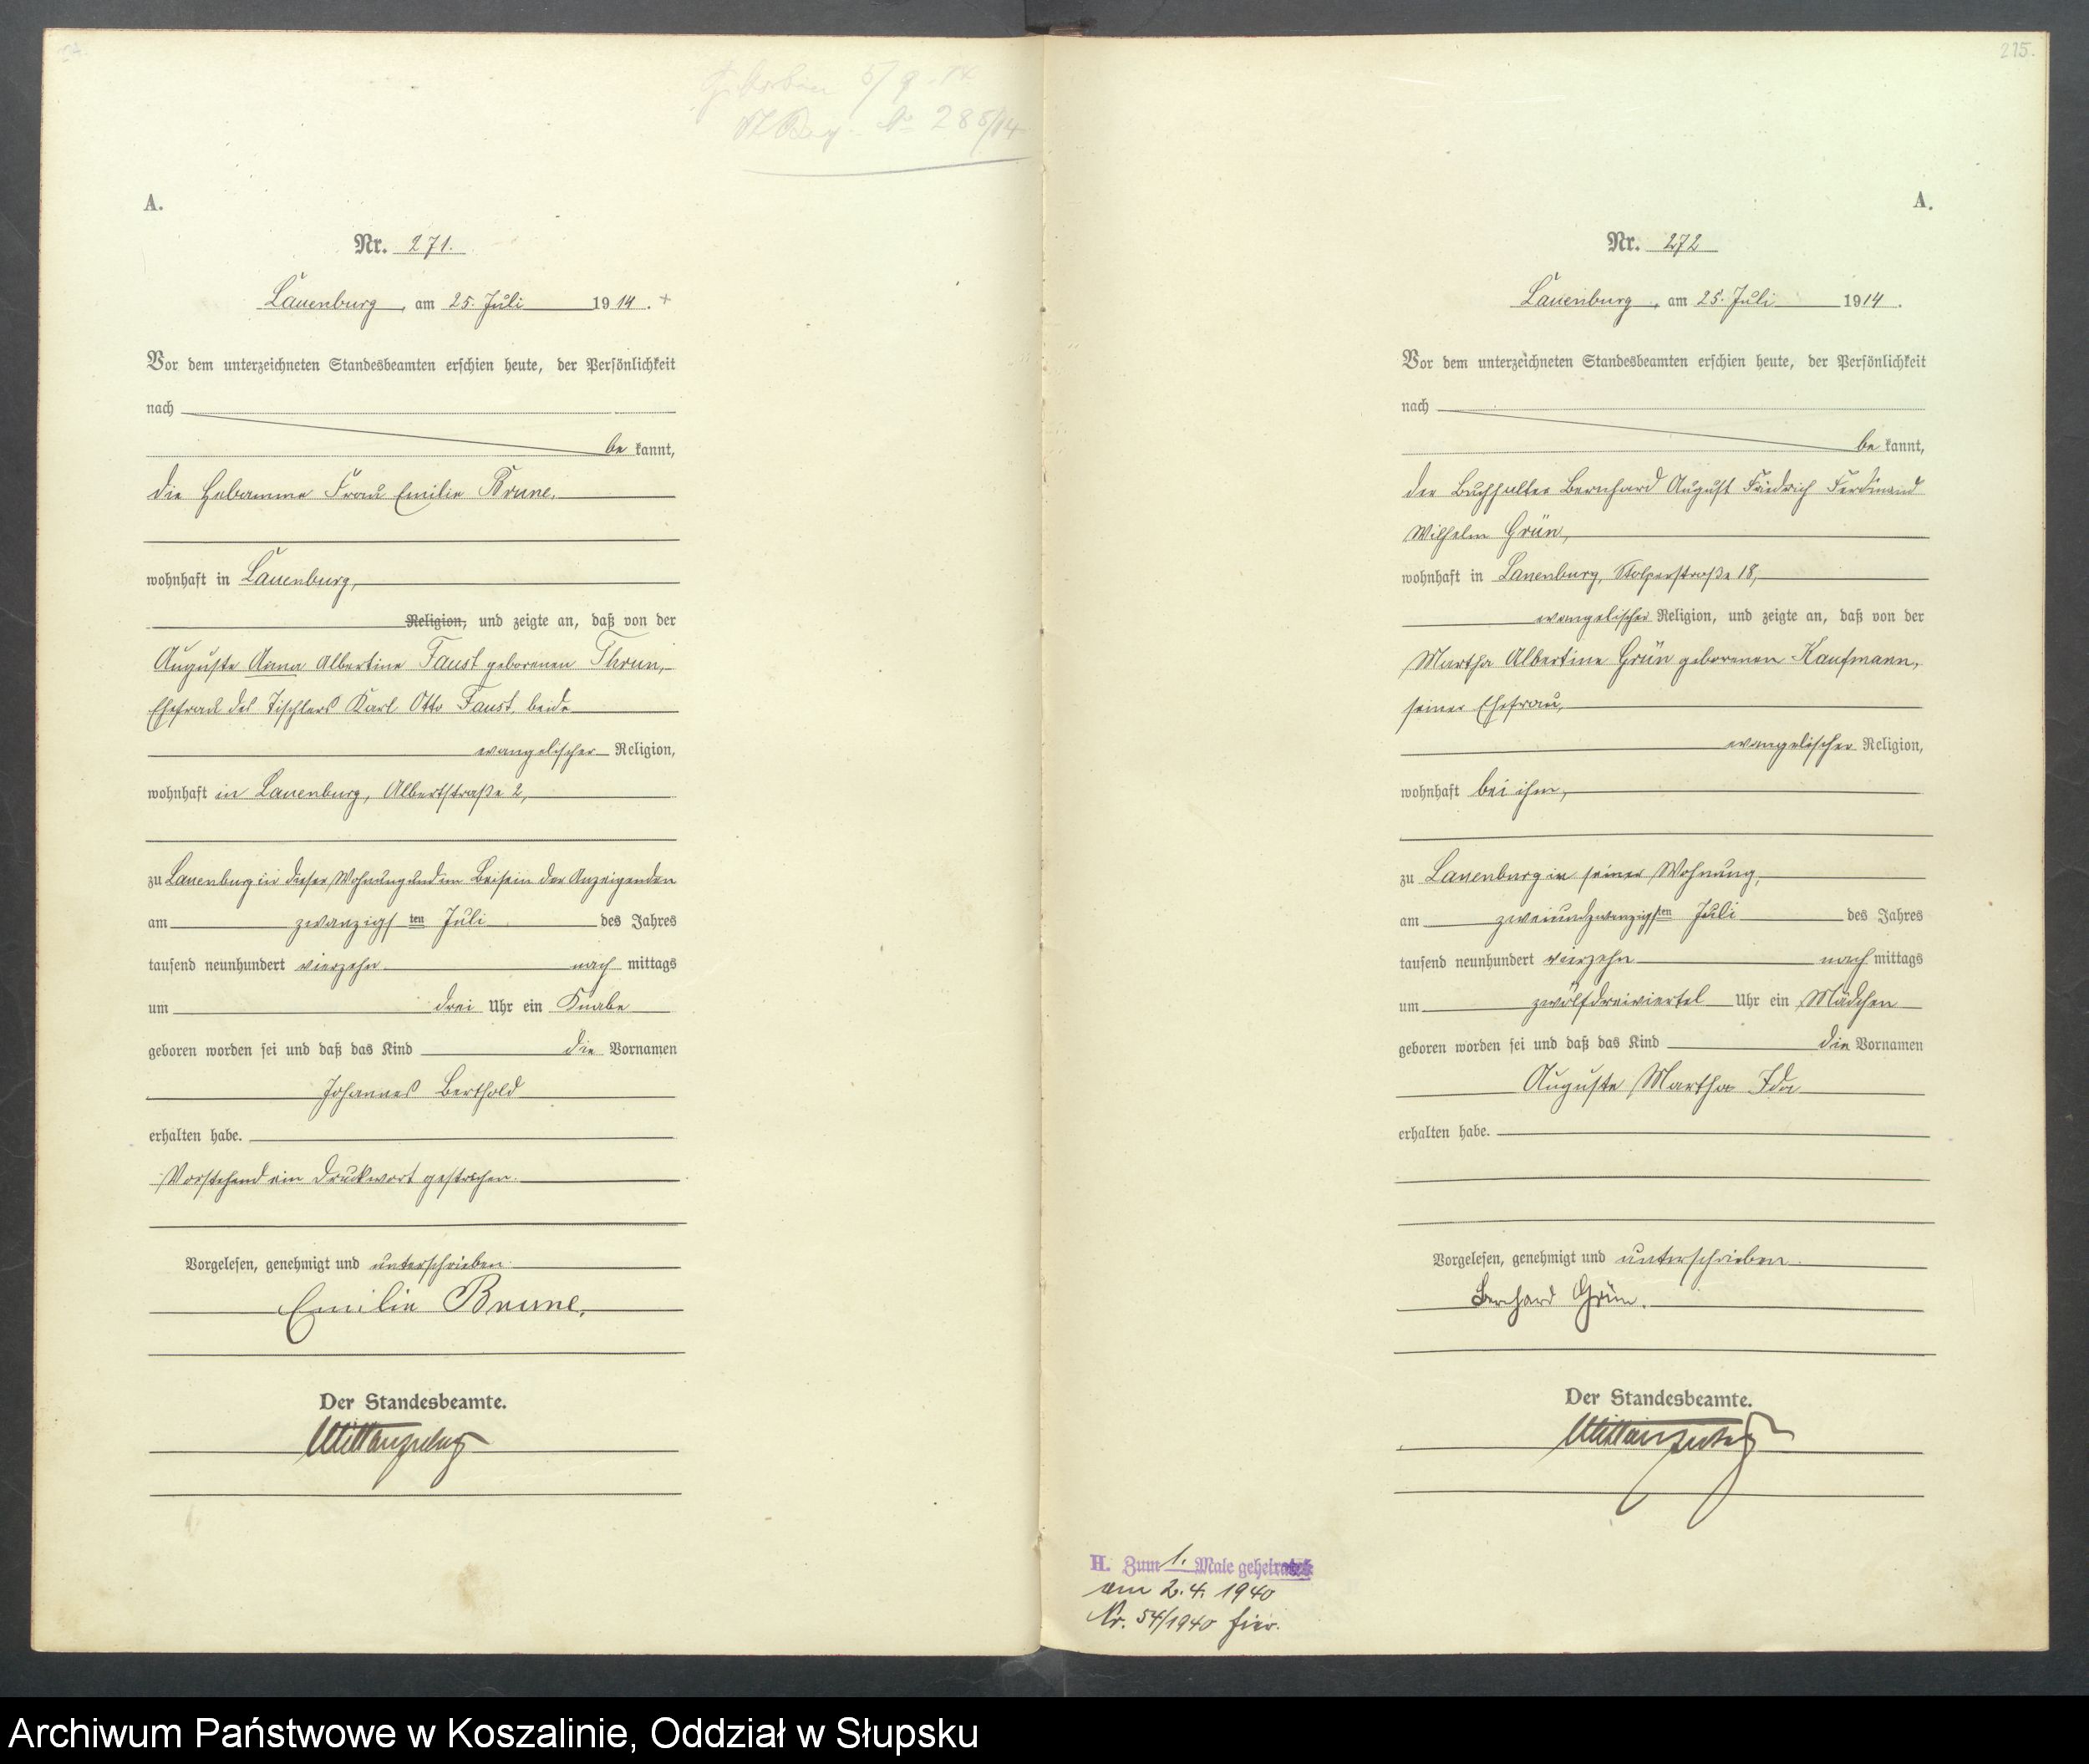 Gestorben 5/9.14.
St. Reg. No 285/14
A.
Nr. 271.
Lauenburg, am 25. Juli 1914. +
Vor dem unterzeichneten Standesbeamten erschien heute, der Persönlichkeit
nach
be kannt,
die Hebamme Frau Emilie Brune,
wohnhaft in Lauenburg,
Religion, und zeigte an, daß von der
Auguste Anna Albertine Faust geborenen Thrun,
Ehefrau des Tischlers Karl Otto Faust, beide
evangelischer Religion,
wohnhaft in Lauenburg, Albertstraße 2,
zu Lauenburg in dieser Wohnung und im Beisein der Anzeigenden
am zwanzigsten Juli des Jahres
tausend neunhundert vierzehn nach mittags
um drei Uhr ein Knabe
geboren worden sei und daß das Kind die Vornamen
Johannes Berthold
erhalten habe.
Vorstehend ein Druckwort gestrichen.
Vorgelesen, genehmigt und unterschrieben.
Emilie Brune.
Der Standesbeamte.
215.
A.
Nr. 272
Lauenburg, am 25. Juli 1914.
Vor dem unterzeichneten Standesbeamten erschien heute, der Persönlichkeit
nach
be kannt,
der Buchhalter Bernhard August Friedrich Ferdinand
Wilhelm Grün,
wohnhaft in Lauenburg, Stolperstraße 18,
evangelischer Religion, und zeigte an, daß von der
Martha Albertine Grün geborenen Kaufmann,
seiner Ehefrau,
evangelischer Religion,
wohnhaft bei ihm,
zu Lauenburg in seiner Wohnung,
am zweiundzwanzigsten Juli des Jahres
tausend neunhundert vierzehn nach mittags
um zwölfdreiviertel Uhr ein Mädchen
geboren worden sei und daß das Kind die Vornamen
Auguste Martha Ida
erhalten habe.
Vorgelesen, genehmigt und unterschrieben.
Bernhard Grün.
Der Standesbeamte.
H. Zum 1. Male geheiratet
am 2.4.1940
Nr. 54/1940 hier.
Archiwum Państwowe w Koszalinie, Oddział w Słupsku